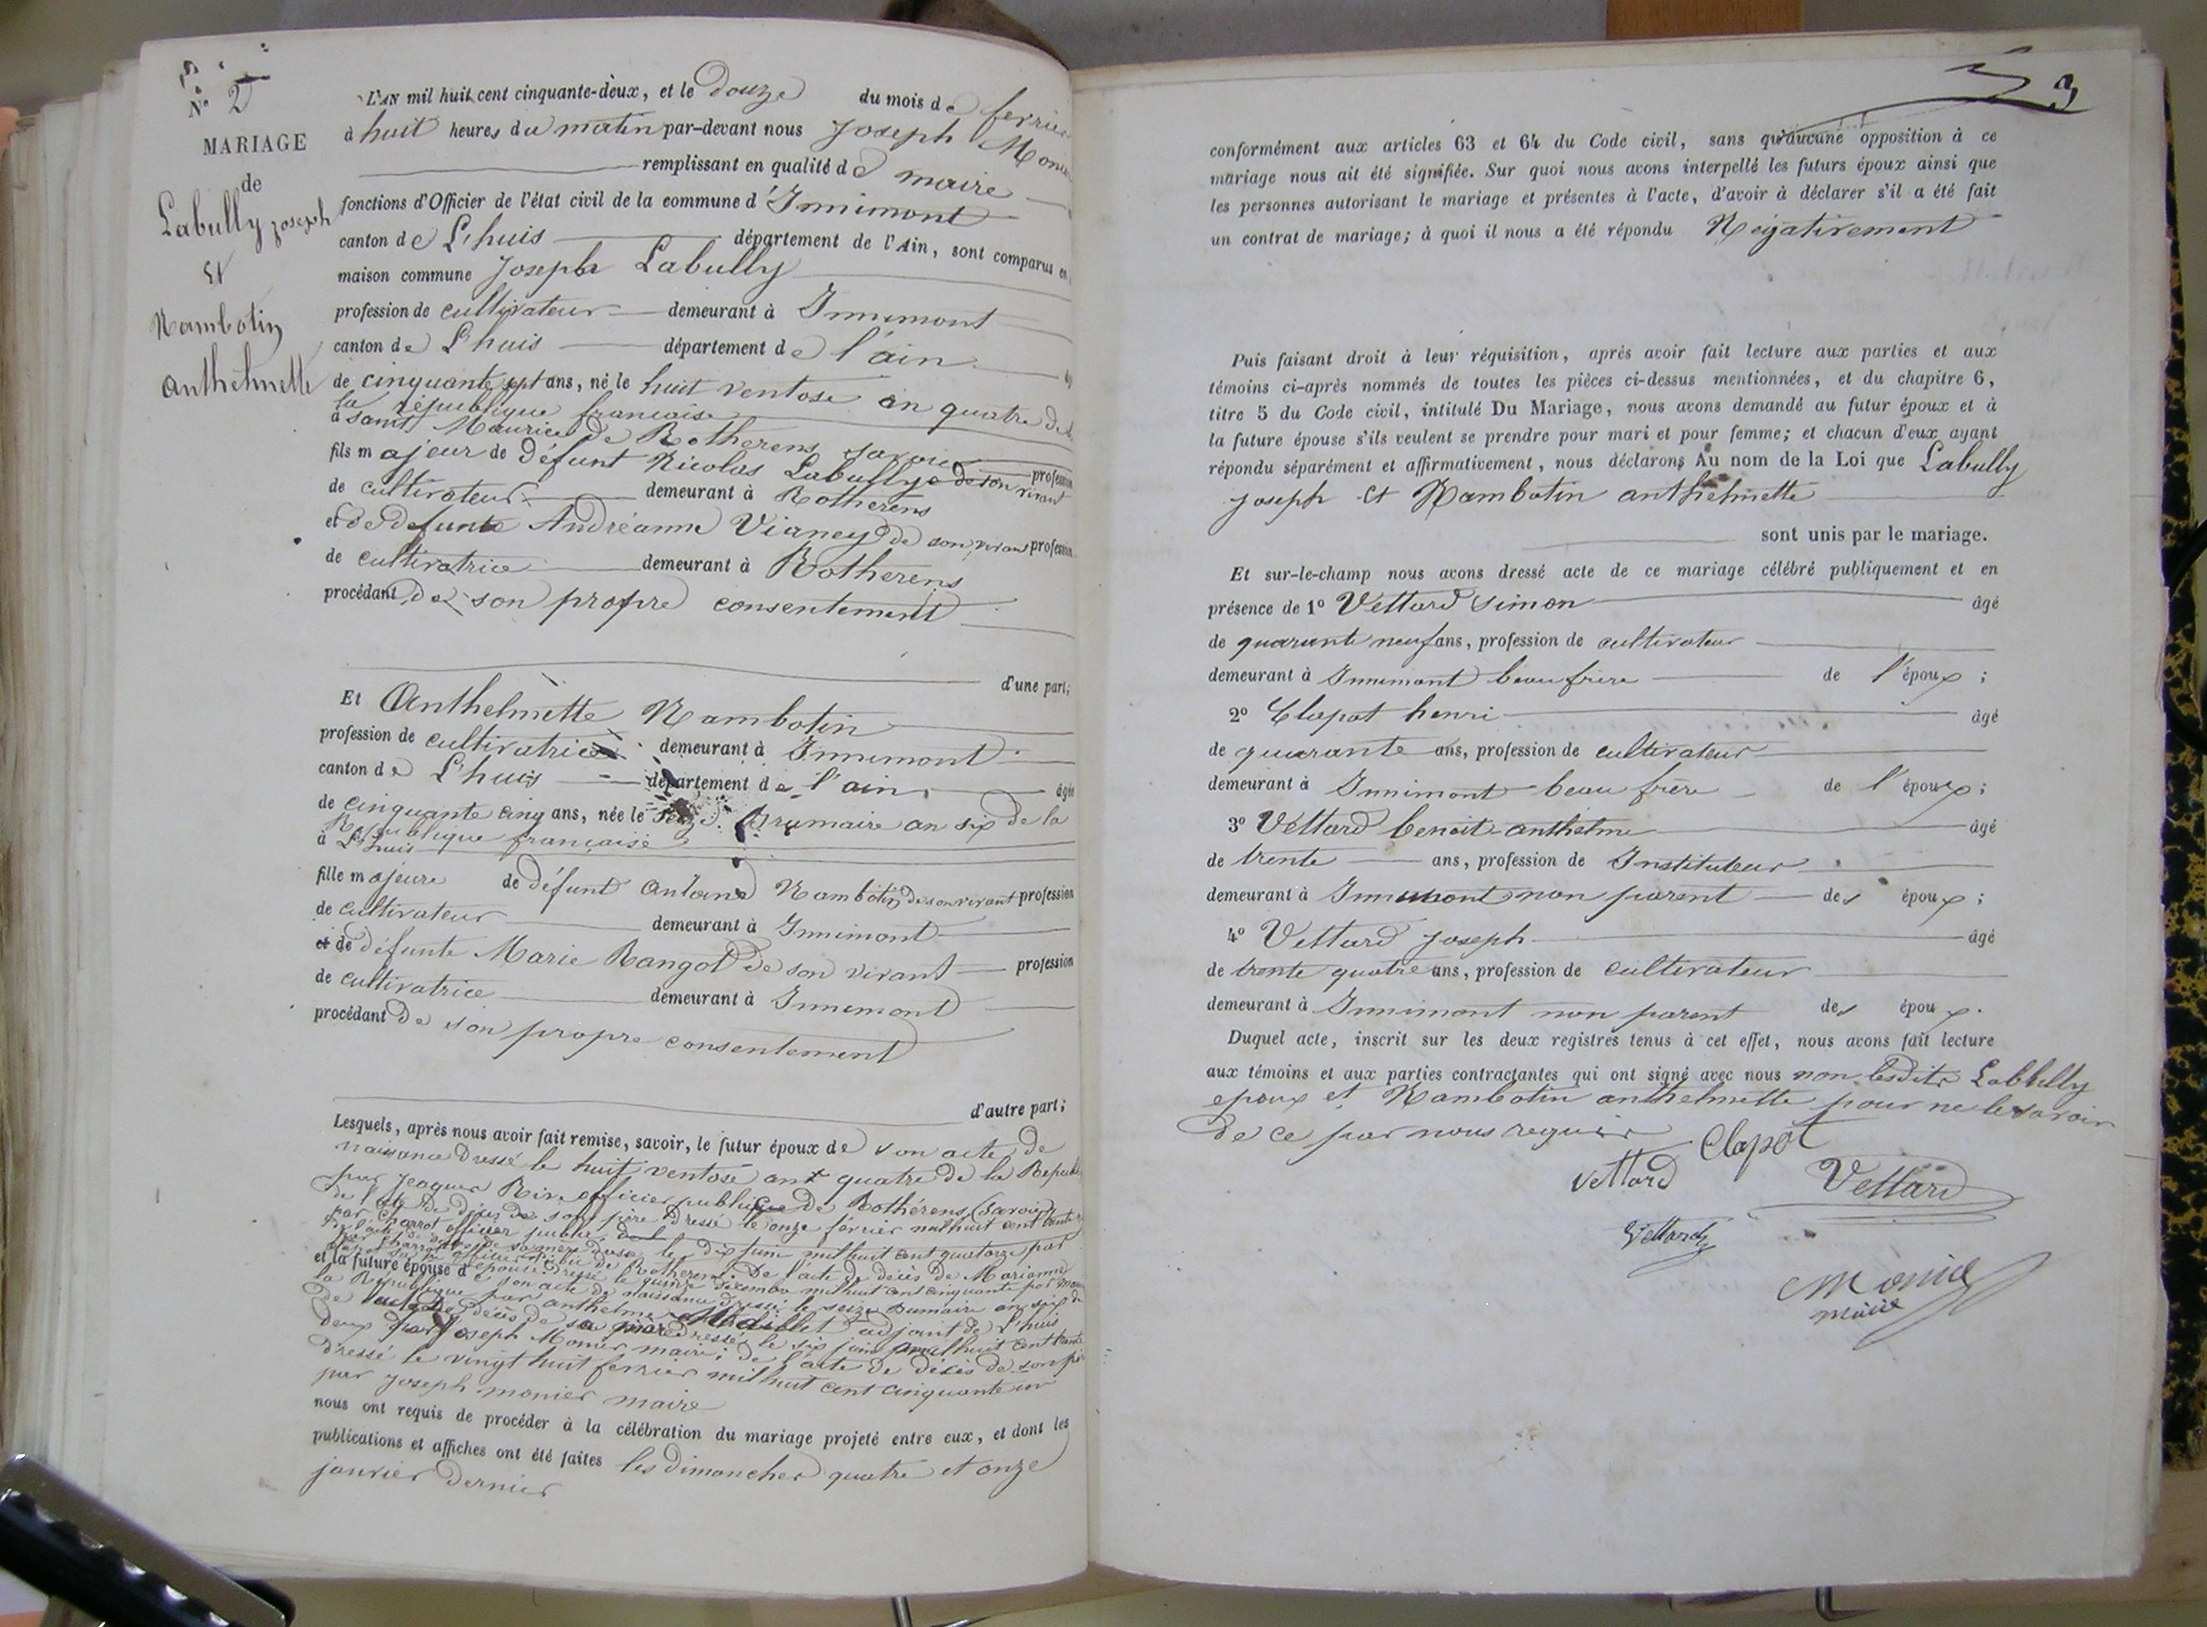 N° 2
MARIAGE
de
Labully joseph
et
Rambotin
anthelmette
L'AN mil huit cent cinquante-deux, et le Douze du mois de fevrier
à huit heures du matin par-devant nous Joseph Monier
remplissant en qualité de maire
fonctions d'Officier de l'état civil de la commune d'Innimont
canton de L'huis département de l'Ain, sont comparus en
maison commune Joseph Labully
profession de cultivateur demeurant à Innimont
canton de L'huis département de l'ain
de cinquante sept ans, né le huit ventose an quatre de
la république francaise
à saint Maurice de Rotherens savoie
fils majeur de défunt Nicolas Labully de son vivant profession
de cultivateur demeurant à Rotherens
et de defunte Andréanne Vianey de son vivant profession
de cultivatrice demeurant à Rotherens
procédant de son propre consentement
d'une part;
Et Anthelmette Rambotin
profession de cultivatrice demeurant à Innimont
canton de L'huis département de l'ain âgée
de cinquante cinq ans, née le seize Brumaire an six de la
République française
à L'huis
fille majeure de défunt Antoine Rambotin de son vivant profession
de cultivateur demeurant à Innimont
et de défunte Marie Rangot de son vivant profession
de cultivatrice demeurant à Innimont
procédant de son propre consentement
d'autre part;
Lesquels, après nous avoir fait remise, savoir, le futur époux de son acte de
naissance dressé le huit ventose an quatre de la Repub
par Jeaques Rive officier publique de Rothérens (Savoie)
de l'acte de décès de son père dressé le onze février mil huit cent trente
par Charrot officier public,
de l'acte de décès de sa mère dressé le dix juin mil huit cent quatorze par
Charrot officier public de Rotherens. De l'acte de décès de Marianne
dressé le quinze décembre mil huit cent cinquante par
et la future épouse de son acte de naissance dressé le seize Brumaire an six de
la République par anthelme Maillet adjoint de L'huis
de l'acte de décès de sa mère dressé le six juin mil huit cent trente
deux par Joseph Monier maire; de l'acte de décès de son père
dressé le vingt huit fevrier mil huit cent cinquante un
par Joseph monier maire
nous ont requis de procéder à la célébration du mariage projeté entre eux, et dont les
publications et affiches ont été faites les dimanches quatre et onze
janvier dernier
3
conformément aux articles 63 et 64 du Code civil, sans qu'aucune opposition à ce
mariage nous ait été signifiée. Sur quoi nous avons interpellé les futurs époux ainsi que
les personnes autorisant le mariage et présentes à l'acte, d'avoir à déclarer s'il a été fait
un contrat de mariage; à quoi il nous a été répondu Négativement
Puis faisant droit à leur réquisition, après avoir fait lecture aux parties et aux
témoins ci-après nommés de toutes les pièces ci-dessus mentionnées, et du chapitre 6,
titre 5 du Code civil, intitulé Du Mariage, nous avons demandé au futur époux et à
la future épouse s'ils veulent se prendre pour mari et pour femme; et chacun d'eux ayant
répondu séparément et affirmativement, nous déclarons Au nom de la Loi que Labully
joseph et Rambotin anthelmette
sont unis par le mariage.
Et sur-le-champ nous avons dressé acte de ce mariage célébré publiquement et en
présence de 1° Vettard simon âgé
de quarante neuf ans, profession de cultivateur
demeurant à Innimont beau frère de l'époux;
2° Clapot henri âgé
de quarante ans, profession de cultivateur
demeurant à Innimont beau frère de l'époux;
3° Vettard benoit anthelme âgé
de trente ans, profession de Instituteur
demeurant à Innimont non parent des époux;
4° Vettard joseph âgé
de trente quatre ans, profession de cultivateur
demeurant à Innimont non parent des époux.
Duquel acte, inscrit sur les deux registres tenus à cet effet, nous avons fait lecture
aux témoins et aux parties contractantes qui ont signé avec nous non lesdits Labbully
epoux et Rambotin anthelmette pour ne le savoir
de ce par nous requis
Clapot
Vettard
Vettard
Vettard
Monier
maire